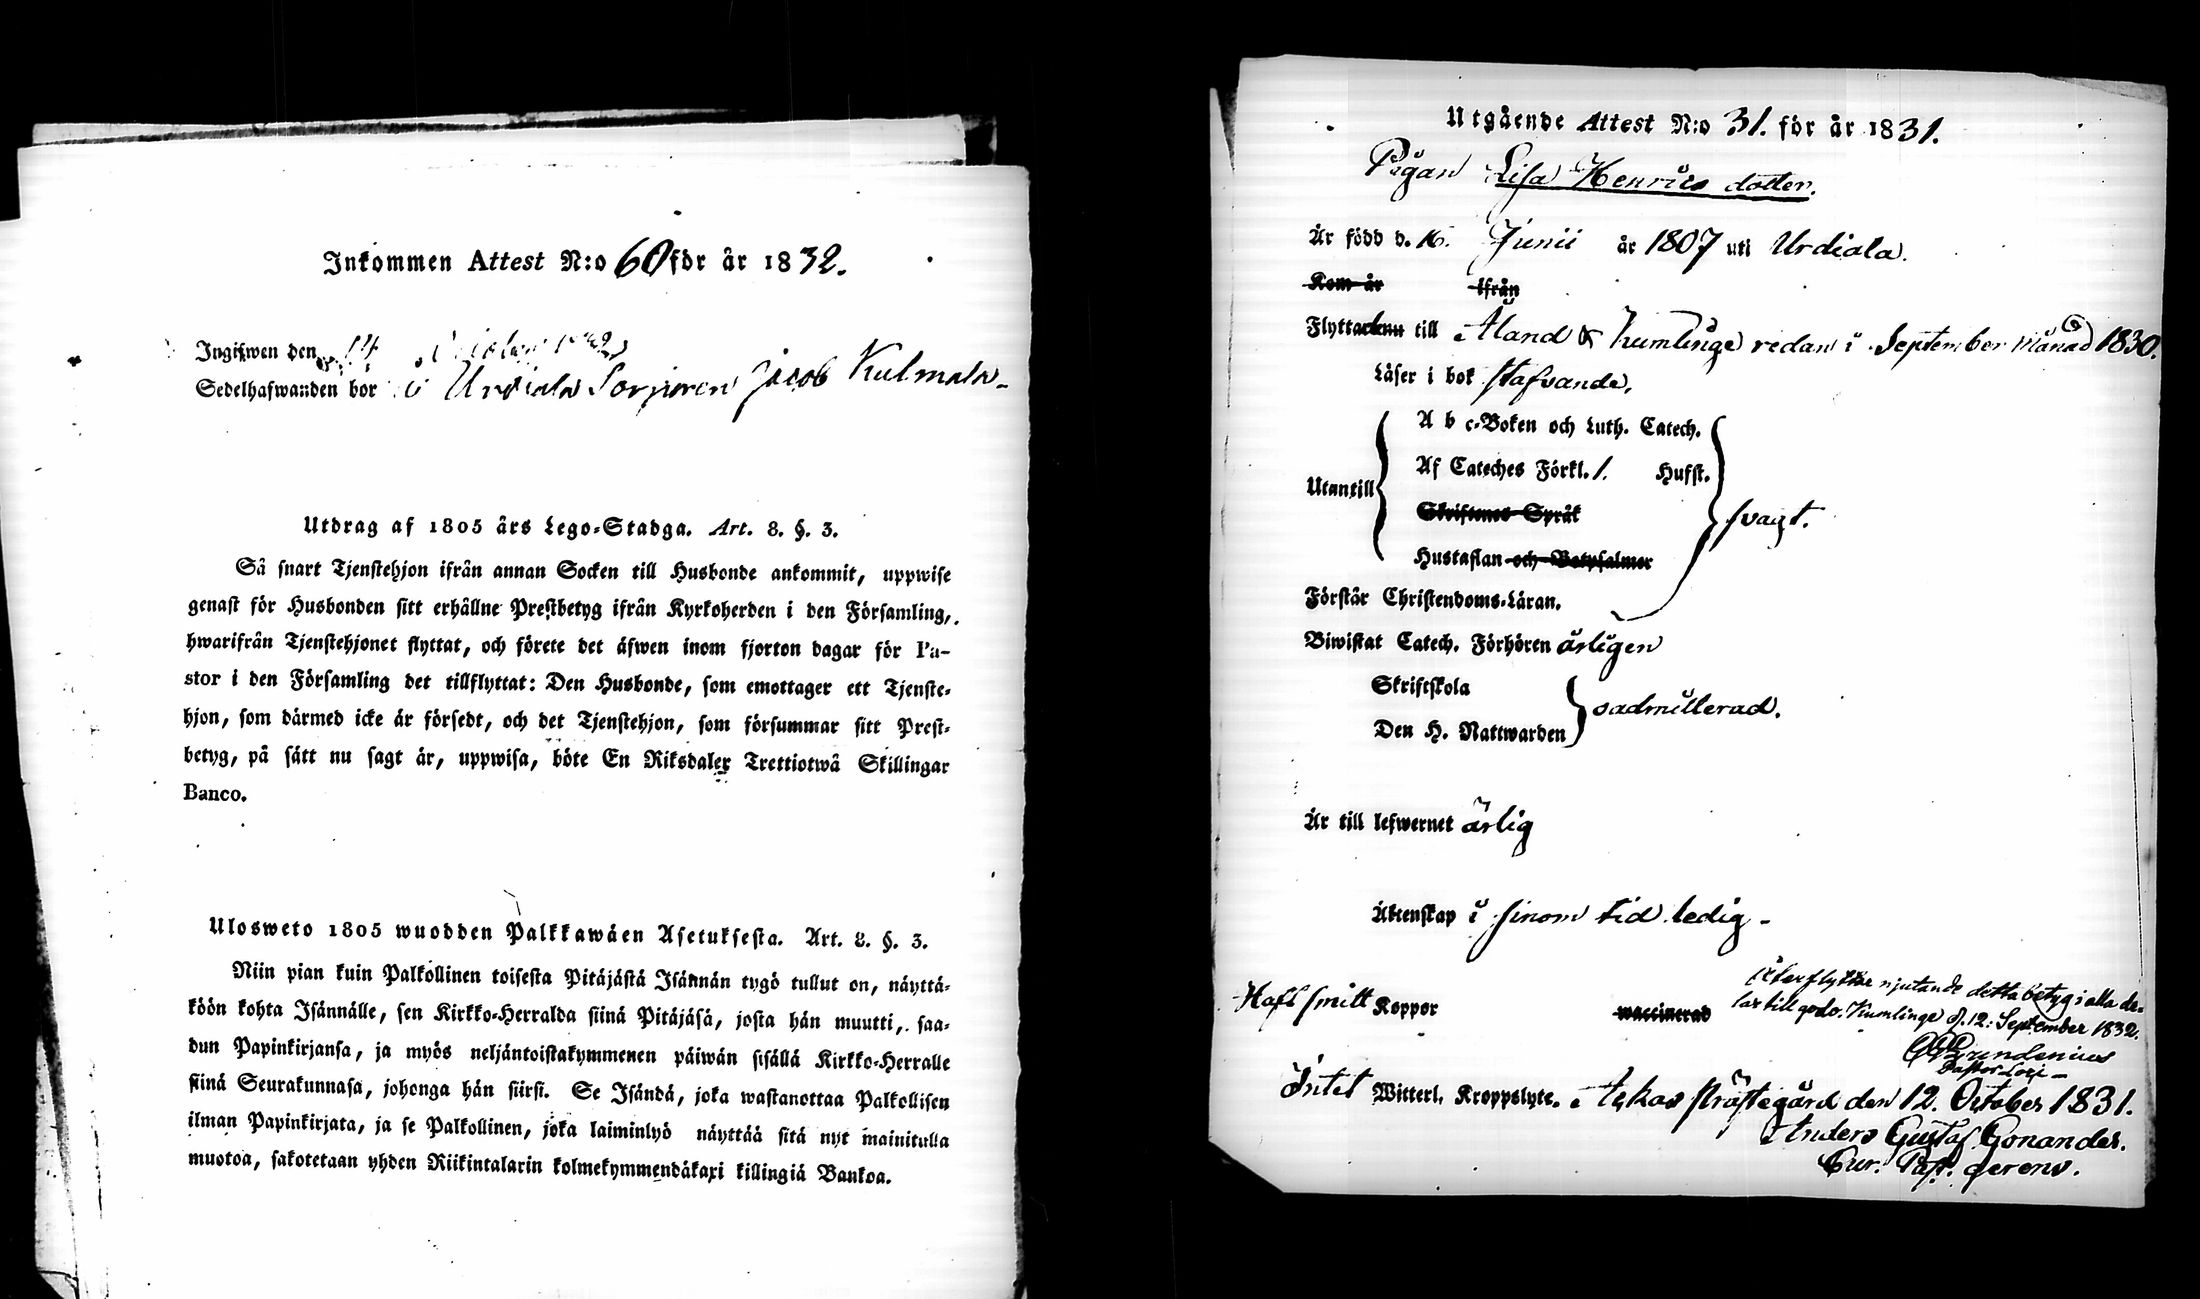 Inkommen Attest N:o 60 för år 1832.
Ingifwen den 14 October 1832
Sedelhafwanden bor i Urdiala Jacob Kulmala
Utdrag af 1805 års Lego-Stadga. Art. 8. §. 3.
Så snart Tjenstehjon ifrån annan Socken till Husbonde ankommit, uppwise
genast för Husbonden sitt erhållne Prestbetyg ifrån Kyrkoherden i den Församling,
hwarifrån Tjenstehjonet flyttat, och förete det äfwen inom fjorton dagar för Pa-
stor i den Församling det tillflyttat: Den Husbonde, som emottager ett Tjenste-
hjon, som därmed icke är försedt, och det Tjenstehjon, som försummar sitt Prest-
betyg, på sätt nu sagt är, uppwisa, böte En Riksdaler Trettiotwå Skillingar
Banco.
Ulosweto 1805 wuodden Palkkawäen Asetuksesta. Art. 8. §. 3.
Niin pian kuin Palkollinen toisesta Pitäjästä Isännän tygö tullut on, näyttä-
köön kohta Isännälle, sen Kirkko-Herralda siinä Pitäjäsä, josta hän muutti, saa-
dun Papinkirjansa, ja myös neljäntoistakymmenen päiwän sisällä Kirkko-Herralle
siinä Seurakunnasa, johonga hän siirsi. Se Isändä, joka wastanottaa Palkollisen
ilman Papinkirjata, ja se Palkollinen, joka laiminlyö näyttää sitä nyt mainitulla
muotoa, sakotetaan yhden Riikintalarin kolmekymmendäkaxi killingiä Bankoa.
Utgående Attest N:o 31. för år 1831.
Pigan Lisa Henrics dotter.
Är född d. 16. Junii år 1807 uti Urdiala.
Kom år ifrån
Flyttade till Åland & Kumlinge redan i September månad 1830.
Läser i bok stafvande.
A b c-Boken och Luth. Catech.
Af Cateches Förkl. 1. Hufst.
Utantill
Skriftenes Språk
svagt.
Hustaflan och Botpsalmer
Förstår Christendoms-Läran.
Biwistat Catech. Förhören årligen
Skriftskola
oadmitterad.
Den H. Nattwarden
Är till lefwernet ärlig
Äktenskap i sinom tid ledig -
Återflyttar njutande detta betyg i alla de-
lar till godo. Kumlinge d. 12: September 1832.
Haft smitt Koppor waccinerad
Pastor Loci -
Intet Witterl. Kroppslyte. Akas Prästegård den 12. October 1831.
Anders Gustaf Gonander.
Cur. Past. gerens.